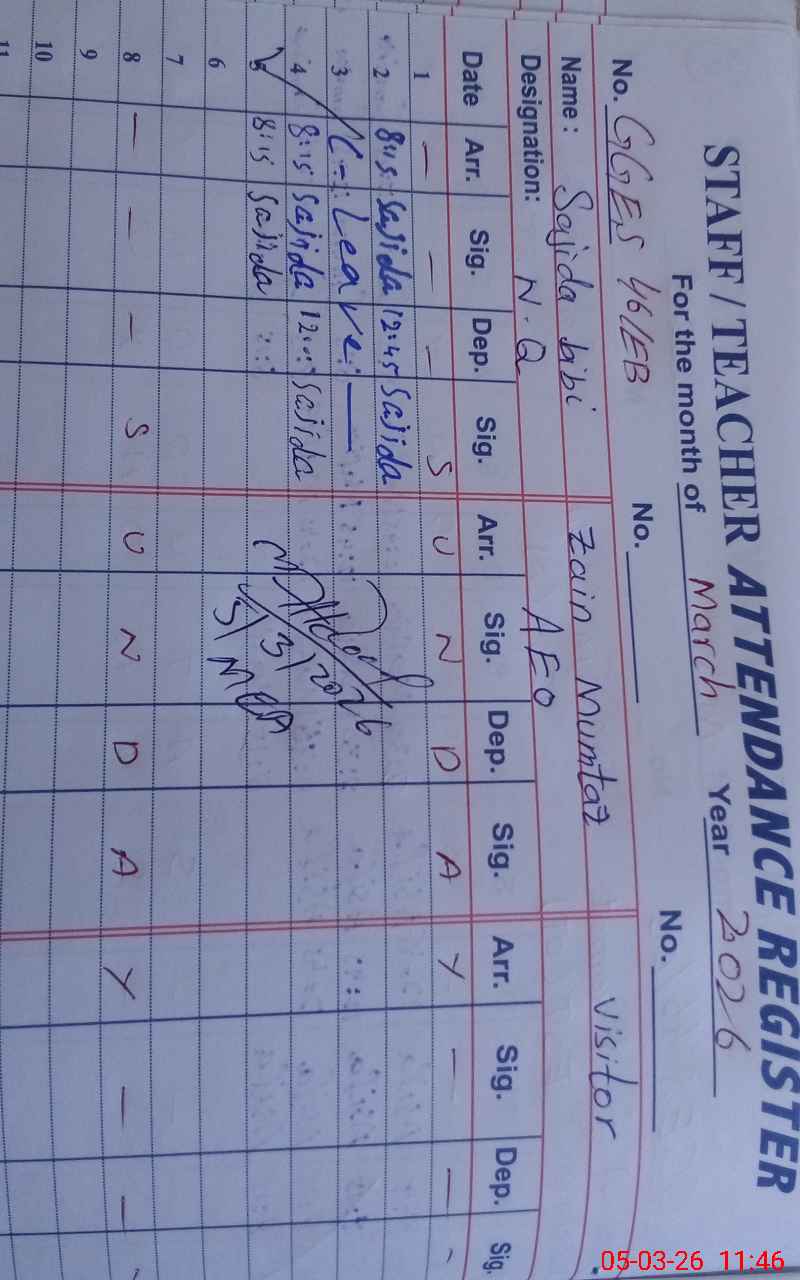 STAFF / TEACHER ATTENDANCE REGISTER
For the month of March Year 2026
No. GGES 46/EB No. No.
Name: Sajida bibi Zain Mumtaz visitor
Designation: N.Q AEO
Date Arr. Sig. Dep. Sig. Arr. Sig. Dep. Sig. Arr. Sig. Dep. Sig.
1 — — — S U N D A Y — — -
2 8:15 Sajida 12:45 Sajida
3 C-Leave —
4 8:15 Sajida 12:00 Sajida
5 8:15 Sajida
5/3/2026
6
7
8 — — — S U N D A Y — — -
9
10
11
05-03-26 11:46